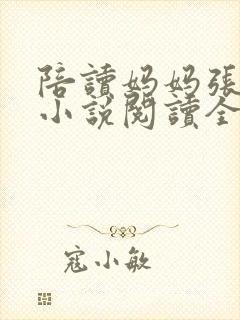 陪讀妈妈張
小說閱讀全
寇小敏